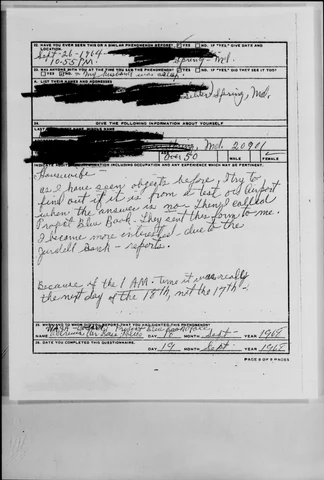 32. HAVE YOU EVER SEEN THIS OR A SIMILAR PHENOMENON BEFORE? YES NO. IF "YES", GIVE DATE AND LOCATION.
Sept - 26 - 1964 Spring - Md.
10:55 PM.
33. WAS ANYONE WITH YOU AT THE TIME YOU SAW THE PHENOMENON? YES NO. IF "YES", DID THEY SEE IT TOO?
YES NO - my husband was asleep.
A. LIST THEIR NAMES AND ADDRESSES
Silver Spring, Md.
34. GIVE THE FOLLOWING INFORMATION ABOUT YOURSELF
LAST NAME
Spring, Md. 20901
Over 50 MALE FEMALE
INDICATE ADDITIONAL INFORMATION INCLUDING OCCUPATION AND ANY EXPERIENCE WHICH MAY BE PERTINENT.
Housewife -
as I have seen objects before, I try to
find out if it is from a test or Airport
when the answer is no. Then I called
Project Blue Book. They sent this form to me.
I become more interested - due to the
- reports.
Because of the 1 AM. Time it was really
the next day of the 18th, not the 17th -
35. WHEN AND TO WHOM DID YOU REPORT THAT YOU HAD SIGHTED THIS PHENOMENON?
NAME Andrews Air Force DAY 18 MONTH Sept - YEAR 1968
36. DATE YOU COMPLETED THIS QUESTIONNAIRE.
DAY 19 MONTH Sept YEAR 1968